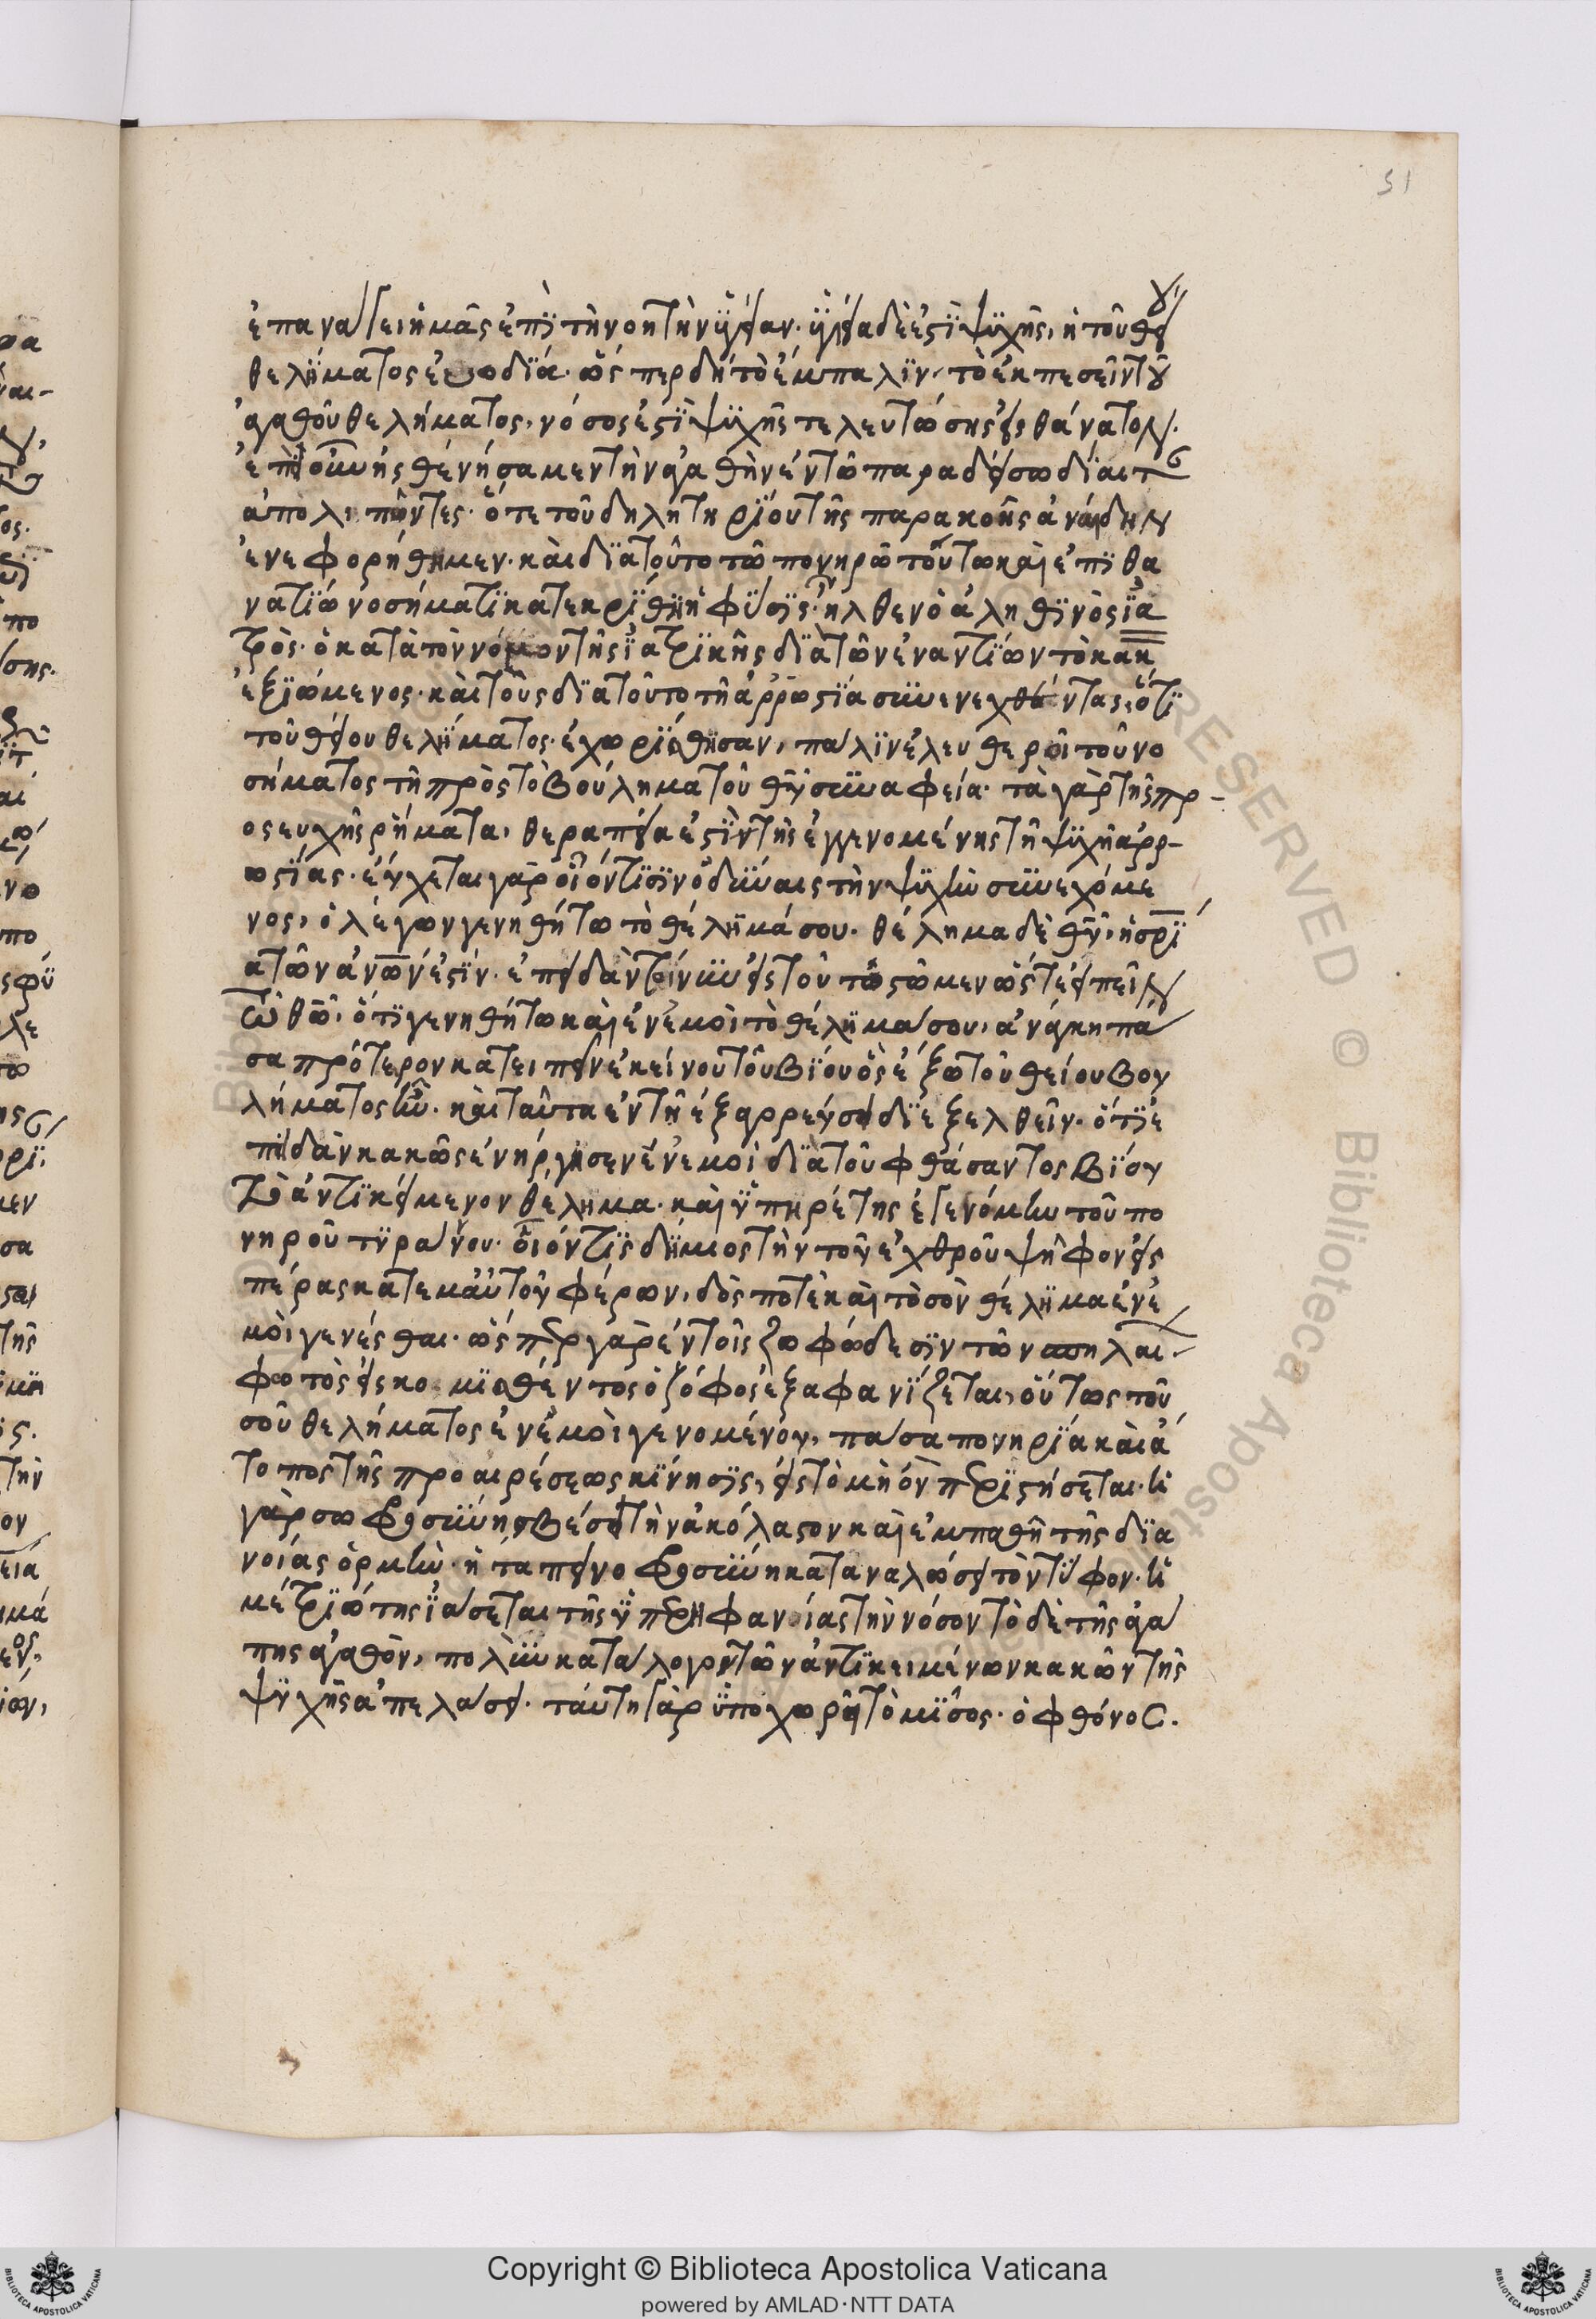 31
ἐπανάγει ἡμᾶς ἐπῒ τὴν οητὴν ὑγείαν. ὑγεία δὲ ἐστῒ ψϋχῆς, ἡ τοῦ θείου
θελήματος εὐωδΐα. ὥσπερ δὴ τὸ ἔμπαλϊν, τὸ ἐκπεσεῖν τοῦ
ἀγαθοῦ θελήματος, νόσος ἐστῒ ψϋχῆς τελευτώσης εἰς θάνατον.
ἀπολιπόντες. ὅτε τοῦ δηλητηρΐου τῆς παρακοῆς ἀνάδην
ἐνεφορήθημεν. καὶ δϊατοῦτο τῶ πονηρῶ τούτω καὶ ἐπϊ θα
νατϊῶ νοσήματϊ κατεκρΐθη ἡ φΰσϊς. ἦλθεν ὁ ἀληθϊνὸς ϊα
τρὸς. ὁ κατὰ τὸν νόμον τῆς ϊατρϊκῆς δϊὰ τῶν ἐναντΐων τὸ κακ
ἐξϊώμενος. καὶ τοὺς δϊατοῦτο τῆ ἀρρωστΐα συνενεχθέντας, ὅτϊ
τοῦ θείου θελήματος ἐχωρΐσθησαν, πάλϊν ἐλευθεροῖ τοῦ νο
σήματος τῆ πρὸς τὸ βούλημα τοῦ θυ συναφεία. τὰ γὰρ τῆς πρ-
οσευχῆς ρήματα, θεραπεία ἐστῒν τῆς ἐγγενομένης τῆ ψϋχῆ ἀρρ-
ωστΐας. εὔχεται γὰρ οἷόντϊσϊν ὀδύναις τὴν ψϋχὴν συνεχόμε
νος, ὁ λέγων γενηθήτω τὸ θέλημά σου. θέλημα δὲ θυ, ἡ σρΐ
α τῶν ἀνων ἐστΐν. ἐπειδὰν τοίνυν εἰς τοῦτο στῶμεν ὥστε εἰπεῖν
τῶ θω, ὅτϊ γενηθήτω καὶ ἐν ἐμοὶ τὸ θέλημα σου, ἀνάγκη πᾶ
σα πρότερον κατειπεῖν ἐκείνου τοῦ βΐου ὃς ἔξω τοῦ θείου βου
λήματος ἦν. καὶ ταῦτα ἐν τῆ ἐξαγορεύσει δϊεξελθεῖν. ὅτϊ ἐ
πειδὰν κακῶς ἐνήργησεν ἐν ἐμοὶ δϊὰ τοῦ φθάσαντος βΐου
τὸ ἀντϊκείμενον θέλημα. καὶ ὑπηρέτης ἐγενόμην τοῦ πο
νηροῦ τϋράννου. οἷόντϊς δήμιος τὴν τοῦ ἐχθροῦ ψῆφον εἰς
πέρας κατεμαυτοῦ φέρων, δὸς ποτὲ καὶ τὸ σὸν θέλημα ἐν ἐ
μοὶ γενέσθαι. ὥσπερ γὰρ ἐν τοῖς ζοφώδεσϊν τῶν σπηλαι
φωτὸς εἰσκομϊσθέντος ὁ ζόφος ἐξαφανΐζεται, οὕτως τοῦ
σοῦ θελήματος ἐν ἐμοὶ γενομένου, πᾶσα πονηρΐα καὶ ἄ
τοπος τῆς προαιρέσεως κΐνησϊς, εἰς τὸ μὴ ὂν περϊστήσεται. ἡ
γὰρ σωφροσύνη σβέσει τὴν ἀκόλαστον καὶ ἐμπαθῆ τῆς δϊα
νοίας ὁρμὴν. ἡ ταπεινοφροσύνη καταναλώσει τὸν τῦφον. ἡ
μετρϊότης ϊάσεται τῆς ὑπερηφανίας τὴν νόσον τὸ δὲ τῆς ἀγά
πης ἀγαθὸν, πολὺν κατάλογον τῶν ἀντϊκειμένων κακῶν τῆς
ψυχῆς ἀπελάσει. ταύτη γὰρ ὑποχωρεῖ τὸ μῖσος. ὁ φθόνος.
Copyright © Biblioteca Apostolica Vaticana
powered by AMLAD·NTT DATA